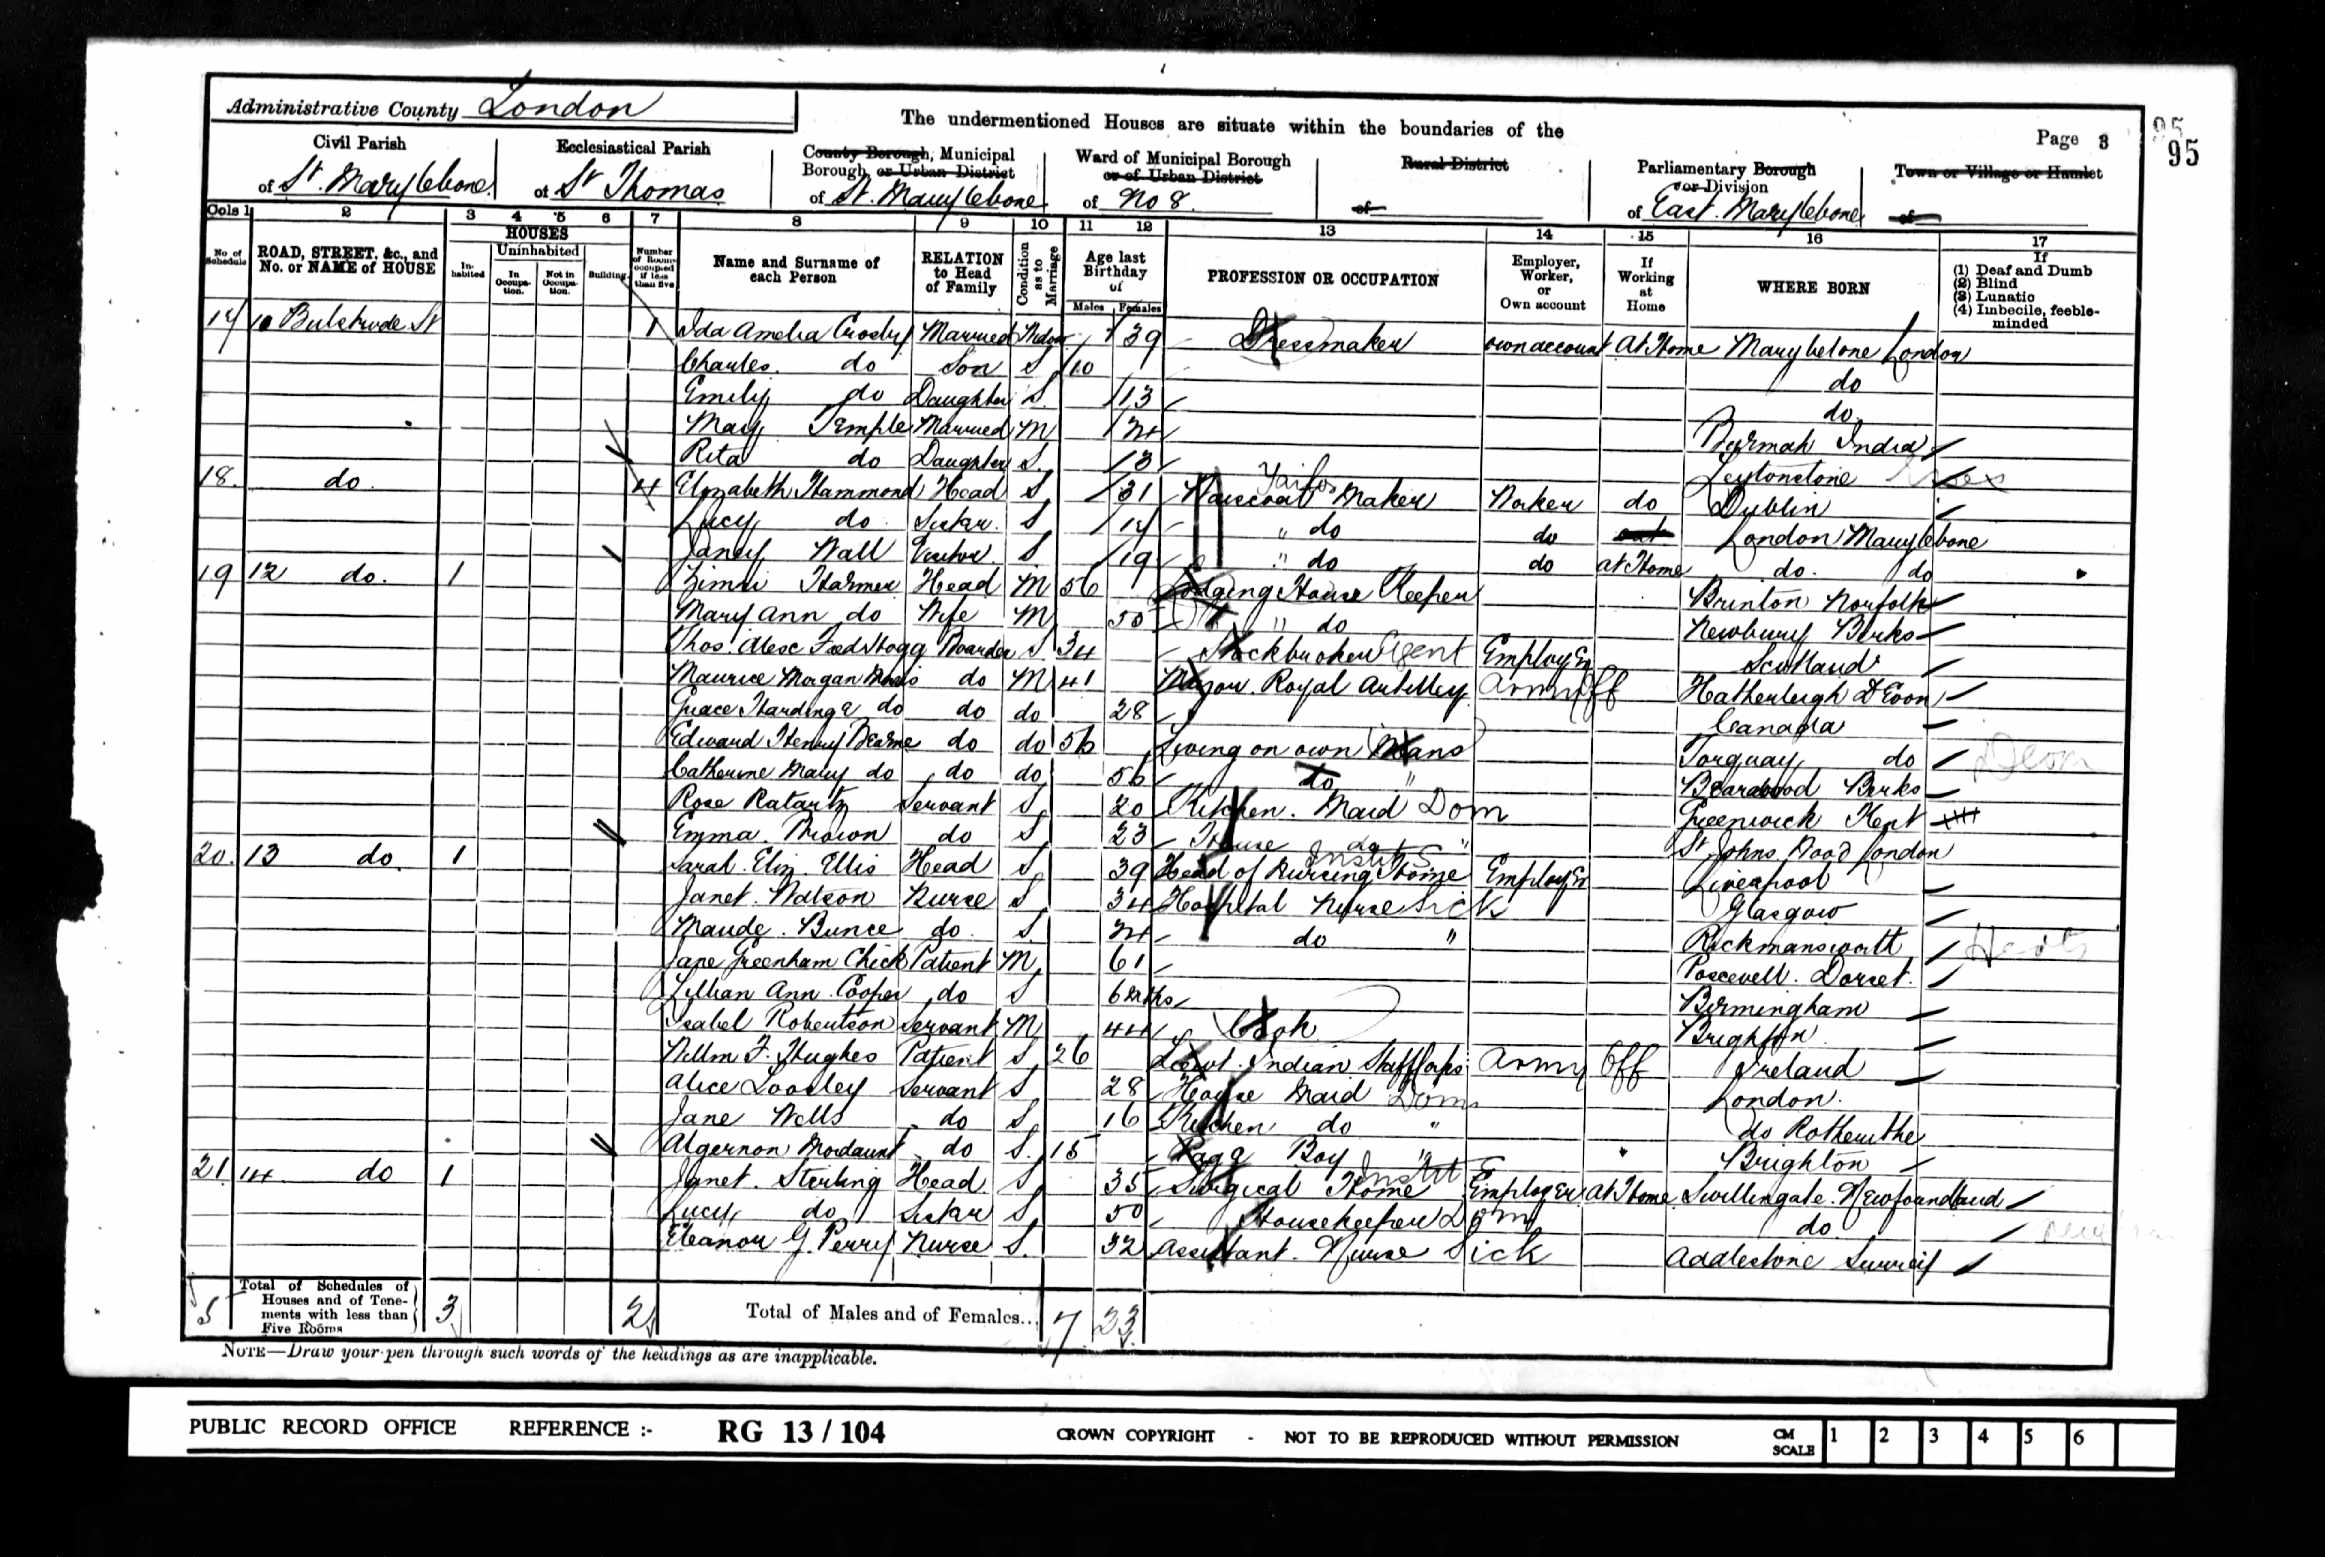 Administrative County London
The undermentioned Houses are situate within the boundaries of the
Page 3
95
95
Civil Parish
of St. Marylebone
Ecclesiastical Parish
of St Thomas
County Borough, Municipal
Borough or Urban District
of St. Marylebone
Ward of Municipal Borough
or of Urban District
of No 8.
Rural District
of
Parliamentary Borough
or Division
of East Marylebone
Town or Village or Hamlet
of
Cols 1 2 3 4 5 6 7 8 9 10 11 12 13 14 15 16 17
No of Schedule
ROAD, STREET, &c., and No. or NAME of HOUSE
HOUSES
In-habited
Uninhabited
In Occupa-tion.
Not in Occupa-tion.
Building
Number of Rooms occupied if less than five
Name and Surname of each Person
RELATION to Head of Family
Condition as to Marriage
Age last Birthday of
Males Females
PROFESSION OR OCCUPATION
Employer, Worker, or Own account
If Working at Home
WHERE BORN
If
(1) Deaf and Dumb
(2) Blind
(3) Lunatic
(4) Imbecile, feeble-minded
17 10 Bulstrode St 1 Ida Amelia Crosby Married Widow 39 Dressmaker own account At Home Marybelone London
Charles do Son S 10 do
Emily do Daughter S 13 do
May Temple Married M 24 Burmah India
Rita do Daughter S. 3 Leytonstone
18. do. 4 Elizabeth Hammond Head S 31 Waiscoat Maker Worker do Dublin
Lucy do Sister. S 17 " do do out London Marylebone
Janey Wall Visitor S 19 " do do at Home do. do
19 12 do. 1 Zimri Harmer Head M 56 Lodging House Keeper Brinton Norfolk
Mary Ann do Wife M 50 " do Newbury Berks
Thos. Alexc Fred Hogg Boarder S 34 Stockbroker Agent Employer Scotland
Maurice Morgan do M 41 Major Royal Artillery Army Off Hatherleigh DEvon
Grace Hardinge do do do 28 Canada
Edward Henry Bearne do do 56 Living on own Means Torquay do Devon
Catherine Mary do do do 56 do " Berks
Rose Ratartz Servant S 20 Kitchen. Maid Dom Greenwich Kent
Emma Brown do S 23 House do " St Johns Wood London
20. 13 do. 1 Sarah Eliz. Ellis Head S 39 Head of Nursing Home Employer Liverpool
Janet Watson Nurse S 34 Hospital Nurse Sick Glasgow
Maude Bunce do. S. 24 do " Rickmansworth Herts
Jane Greenham Chick Patient M 61 Dorset.
Lillian Ann Cooper do S 6 Mths Birmingham
Isabel Robertson Servant M 44 Cook Brighton
Willm F. Hughes Patient S 26 Lieut. Indian Staff Corps Army Off Ireland
Alice Loosley Servant S 28 House Maid Dom London.
Jane Wells do S 16 Kitchen do " do Rotherithe
Algernon Mordaunt do S. 15 Page Boy " Brighton
21. 14. do 1 Janet. Sterling Head S 35 Surgical Home Instit Employer At Home Twillingate. Newfoundland
Lucy do Sister S 50 Housekeeper Dom do.
Eleanor G. Perry Nurse S. 32 Assistant. Nurse Sick Addlestone Surrey
5 Total of Schedules of Houses and of Tene-ments with less than Five Rooms 3 2 Total of Males and of Females... 7 23
NOTE—Draw your pen through such words of the headings as are inapplicable.
PUBLIC RECORD OFFICE REFERENCE :- RG 13 / 104 CROWN COPYRIGHT - NOT TO BE REPRODUCED WITHOUT PERMISSION CM SCALE 1 2 3 4 5 6